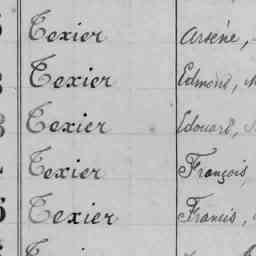 Texier Arsène,
Texier Edmond,
Texier Edouard,
Texier François,
Texier Francis,